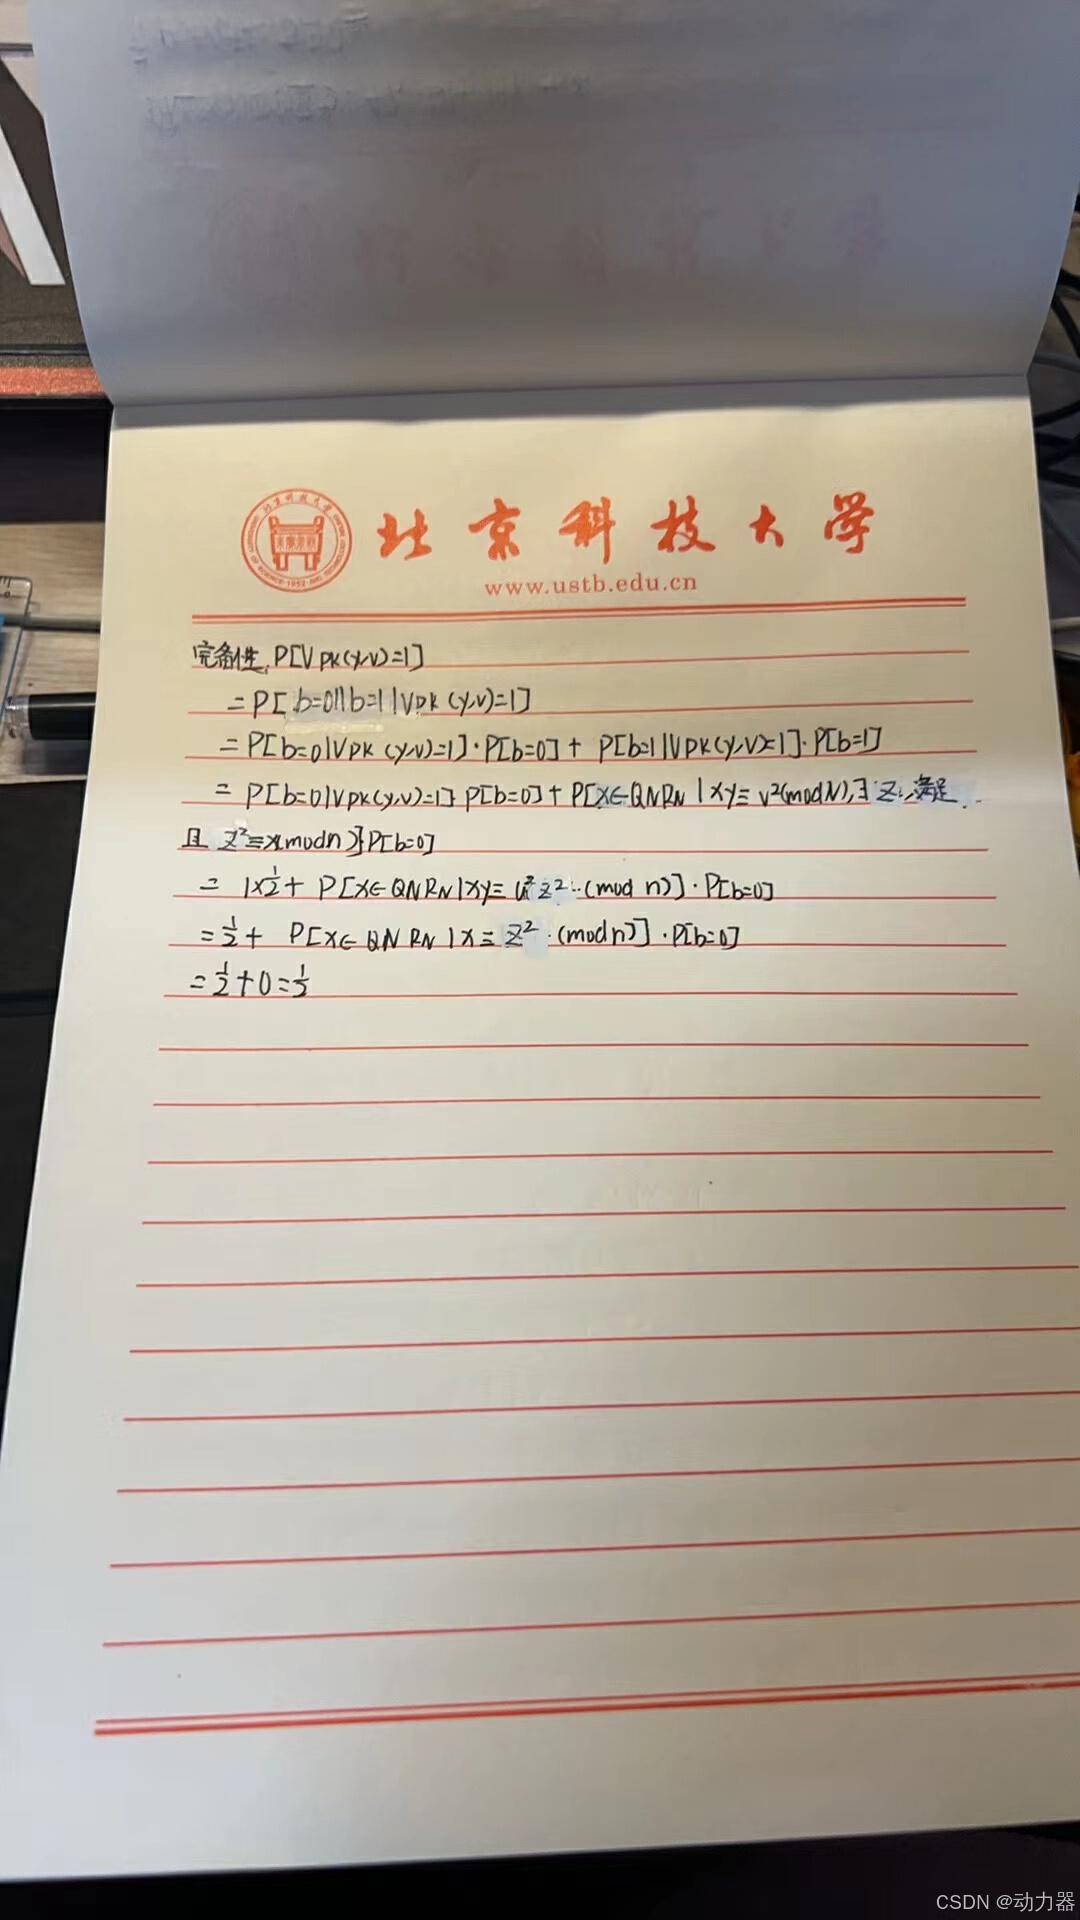 北京科技大学
www.ustb.edu.cn
完备性, P[VPK(y,v)=1]
=P[b=0||b=1|VPK(y,v)=1]
=P[b=0|VPK(y,v)=1]·P[b=0]+P[b=1|VPK(y,v)=1]·P[b=1]
=P[b=0|VPK(y,v)=1]P[b=0]+P[X∈QNRN|xy≡v²(modN),∃Z,满足
且 Z²≡x(modn)]P[b=0]
=1×½+P[X∈QNRN|xy≡u²z²(mod n)]·P[b=0]
=½+P[X∈QNRN|X≡Z²·(modn)]·P[b=0]
=½+0=½
CSDN @动力器